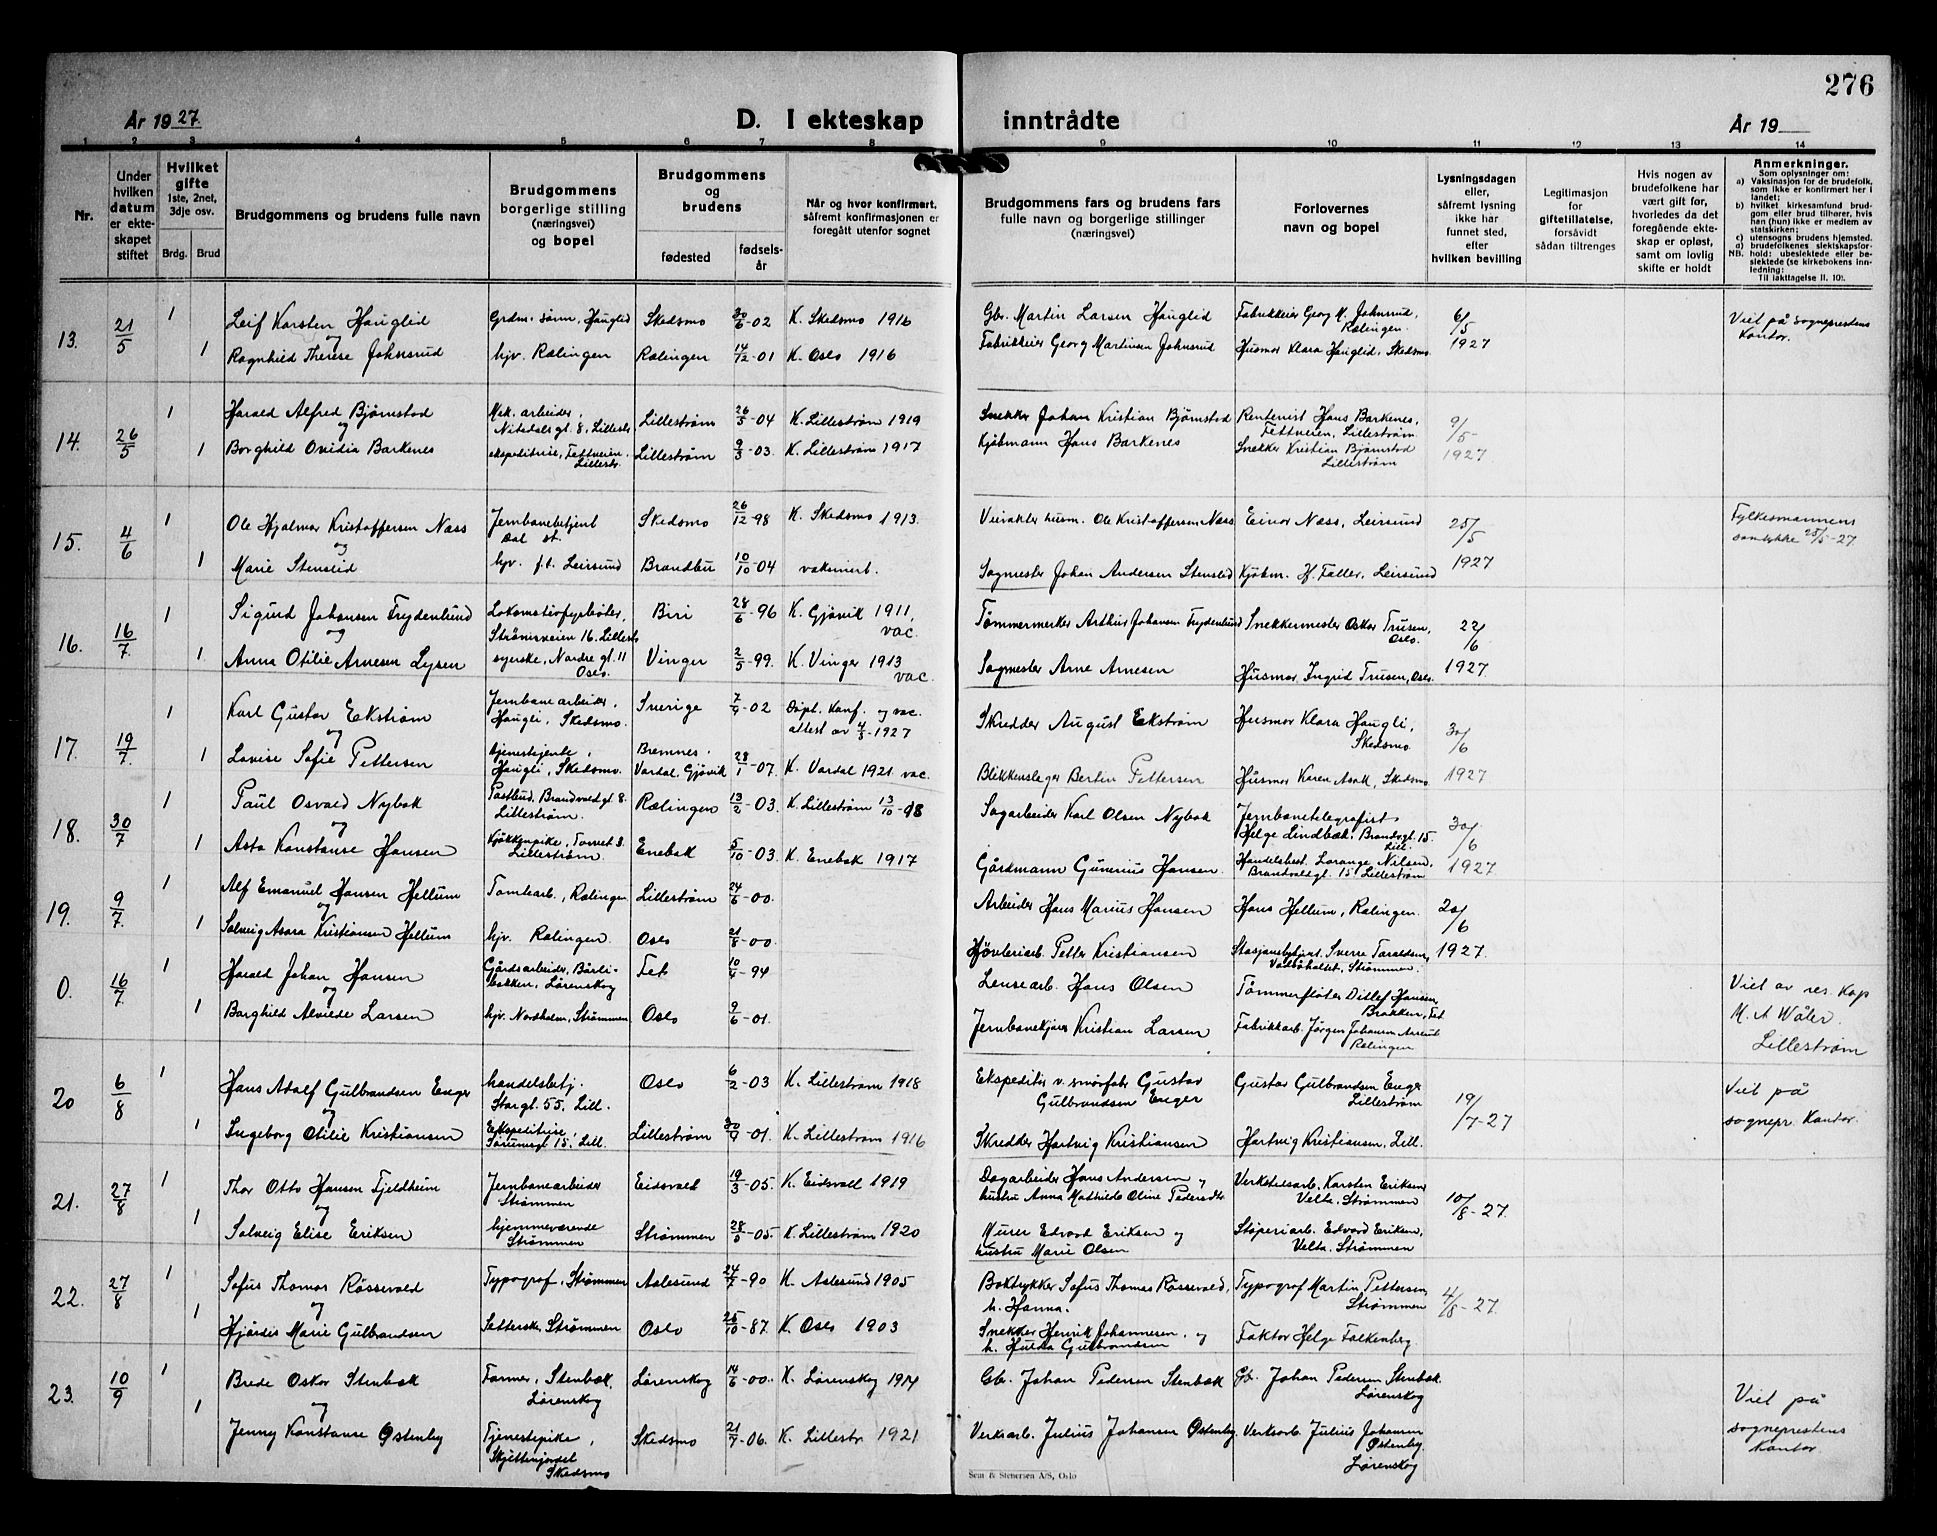 276
År 1927.
D. I ekteskap
inntrådte
År 19
1 2 3 4 5 6 7 8 9 10 11 12 13 14
Nr.
Under hvilken datum er ekteskapet stiftet
Hvilket gifte 1ste, 2net, 3dje osv.
Brdg.
Brud
Brudgommens og brudens fulle navn
Brudgommens borgerlige stilling (næringsvei) og bopel
Brudgommens og brudens
fødested
fødselsår
Når og hvor konfirmert,
såfremt konfirmasjonen er
foregått utenfor sognet
Brudgommens fars og brudens fars
fulle navn og borgerlige stillinger
(næringsvei)
Forlovernes
navn og bopel
Lysningsdagen
eller,
såfremt lysning
ikke har
funnet sted,
efter
hvilken bevilling
Legitimasjon
for
giftetillatelse,
forsåvidt
sådan tiltrenges
Hvis nogen av
brudefolkene har
vært gift før,
hvorledes da det
foregående ekte-
skap er opløst,
samt om lovlig
skifte er holdt
Anmerkninger.
Som oplysninger om:
a) Vaksinasjon for de brudefolk,
som ikke er konfirmert her i
landet;
b) hvilket kirkesamfund brud-
gom eller brud tilhører, hvis
han (hun) ikke er medlem av
statskirken;
c) utensogns brudens hjemsted.
d) brudefolkenes slektskapsfor-
NB. hold: ubeslektede eller be-
slektede (se kirkebokens inn-
ledning:
Til iakttagelse II. 10).
13. 21/5 1 Leif Karsten Hauglid Grdm. sønn, Hauglid Skedsmo 30/6-02 K. Skedsmo 1916 Gbr. Martin Larsen Hauglid Fabrikkeier Georg M. Johnsrud, Rælingen. 6/5 1927 Viet på sogneprestens Kontor.
og
1 Ragnhild Therese Johnsrud hjv. Rælingen Rælingen 14/12-01 K. Oslo 1916 Fabrikkeier Georg Martinsen Johnsrud Husmor Klara Hauglid, Skedsmo.
14. 26/5 1 Harald Alfred Bjørnstad Mek. arbeider, Nitedalsgt. 8, Lillestr. Lillestrøm 26/5-04 K. Lillestrøm 1919 Snekker Johan Kristian Bjørnstad Rentenist Hans Barkenes, Fettveien, Lillestrøm. 9/5 1927
og
1 Borghild Ovidia Barkenes ekspeditrise, Fettveien, Lillestr. Lillestrøm 9/3-03. K. Lillestrøm 1917 Kjøbmann Hans Barkenes Snekker Kristian Bjørnstad Lillestrøm
15. 4/6 1 Ole Hjalmar Kristoffersen Næss Jernbanebetjent Dal st. Skedsmo 26/12-98 K. Skedsmo 1913. Ole Kristoffersen Næss Einar Næss, Leirsund 25/5 1927 Fylkesmannens samtykke 25/5-27.
og
1 Marie Stenslid hjv. f.t. Leirsund Brandbu 10/10-04 vaksinert. Sagmester Johan Andersen Stenslid Kjøbm. H. Faller, Leirsund
16. 16/7 1 Sigurd Johansen Frydenlund Lokomotivfyrbøter, Strømsveien 16. Lillestr. Biri 28/6-96 K. Gjøvik 1911, vac. Tømmermerker Arthur Johansen Frydenlund Snekkermester Oskar Trusen, Oslo. 22/6 1927
og
1 Anna Otilie Arnesen Lysen syerske, Nordre gt. 11 Oslo. Vinger 2/5-99. K. Vinger 1913 vac. Sagmester Arne Arnesen Husmor Ingrid Trusen, Oslo
17. 19/7. 1 Karl Gustav Eckstrøm Jernbanearbeider, Haugli, Skedsmo. Sverige 7/9-02 Døpt. Konf. og vac. attest av 4/3-1927 Skredder August Eckstrøm Husmor Klara Haugli, Skedsmo. 30/6 1927
og
1 Lovise Sofie Pettersen tjenestejente, Haugli, Skedsmo. Bremnes. Vardal, Gjøvik 28/1-07. K. Vardal 1921 vac. Blikkenslager Bertin Pettersen Husmor Karen Asak, Skedsmo
18. 30/7 1 Paul Osvald Nybak Postbud, Brandvoldgt. 8. Lillestrøm. Rælingen 13/2-03. K. Lillestrøm 13/10-18 Sagarbeider Karl Olsen Nybak Jernbanetelegrafist Helge Lindbæk, Brandvgt. 15. Lill. 30/6 1927
og
1 Asta Konstanse Hansen Kjøkkenpike, Torvet 3. Lillestrøm. Enebak 5/10-03. K. Enebak 1917 Gårdmann Gunerius Hansen. Handelsbest. Lorange Nilsen, Brandvoldgt. 15 Lillestrøm
19. 9/7. 1 Alf Emanuel Hansen Hellum Tomtearb., Rælingen Lillestrøm 24/6-00. Arbeider Hans Marius Hansen Hans Hellum, Rælingen. 20/6 1927.
og
1 Solveig Asora Kristiansen Hellum hjv. Rælingen. Oslo 21/8-00. Høvleriarb. Petter Kristiansen Stasjonsbetjent Sverre Taraldsen, Strømmen.
0. 16/7. 1 Harald Johan Hansen Gårdsarbeider, Bårlibakken, Lørenskog Fet 10/4-94 Lensearb. Hans Olsen Tømmerfløter Ditlef Hansen, Brakken, Fet. Viet av res. Kap M. A Wåler. Lillestrøm
og
1 Borghild Alvilde Larsen hjv. Nordholm, Strømmen. Oslo 9/6-01. Kristian Larsen Fabrikkarb. Jørgen Johansen Rælingen
20 6/8 1 Hans Adolf Gulbrandsen Enger handelsbetj. Storgt. 55. Lill. Oslo 6/2-03 K. Lillestrøm 1918 Ekspeditør v. smørfabr. Gustav Gulbrandsen Enger Gustav Gulbrandsen Enger Lillestrøm 19/7-27 Viet på sognepr. Kontor.
og
1 Ingeborg Otilie Kristiansen Ekspeditrise, Sørumsgt. 15. Lill. Lillestrøm 30/9-01. K. Lillestrøm 1916 Skredder Hartvig Kristiansen Hartvig Kristiansen, Lill.
21. 27/8 1 Thor Otto Hansen Fjeldheim Jernbanearbeider Strømmen Eidsvold 19/3-05. K. Eidsvoll 1919 Dagarbeider Hans Andersen og hustru Anna Mathilde Oline Pedersdtr. Verkstedsarb. Karsten Eriksen, Velta, Strømmen 10/8-27.
og
1 Solveig Elise Eriksen hjemmeværende Strømmen Strømmen 28/5-05. K. Lillestrøm 1920 Murer Edvard Eriksen og hustru Marie Olsen Støperiarb. Edvard Eriksen, Velta. Strømmen
22. 27/8 1 Sofus Thomas Røssevold Typograf, Strømmen Aalesund 24/7-90 K. Aalesund 1905 Boktrykker Sofus Thomas Røssevold, h. Hanna. Typograf Martin Pettersen, Strømmen 4/8-27.
og
1 Hjørdis Marie Gulbrandsen Setterske, Strømmen Oslo 25/10-87. K. Oslo 1903 Snekker Henrik Johannesen, og h. Hulda Gulbrandsen Faktor Helge Falkenberg.
23. 10/9 1 Brede Oskar Stenbæk Farmer, Stenbæk, Lørenskog Lørenskog 14/6-00. K. Lørenskog 1914 Gbr. Johan Pedersen Stenbæk Gb. Johan Pedersen Stenbæk. Lørenskog Viet på sogneprestens Kontor.
og
1 Jenny Konstanse Østenby Tjenestepike, Skjettenjordet Skedsmo Skedsmo 21/7-06. K. Lillestr. 1921 Verksarb. Julius Johansen Østenby. Verksarb. Julius Johansen Østenby Lørenskog
Sem & Stenersen A/S, Oslo